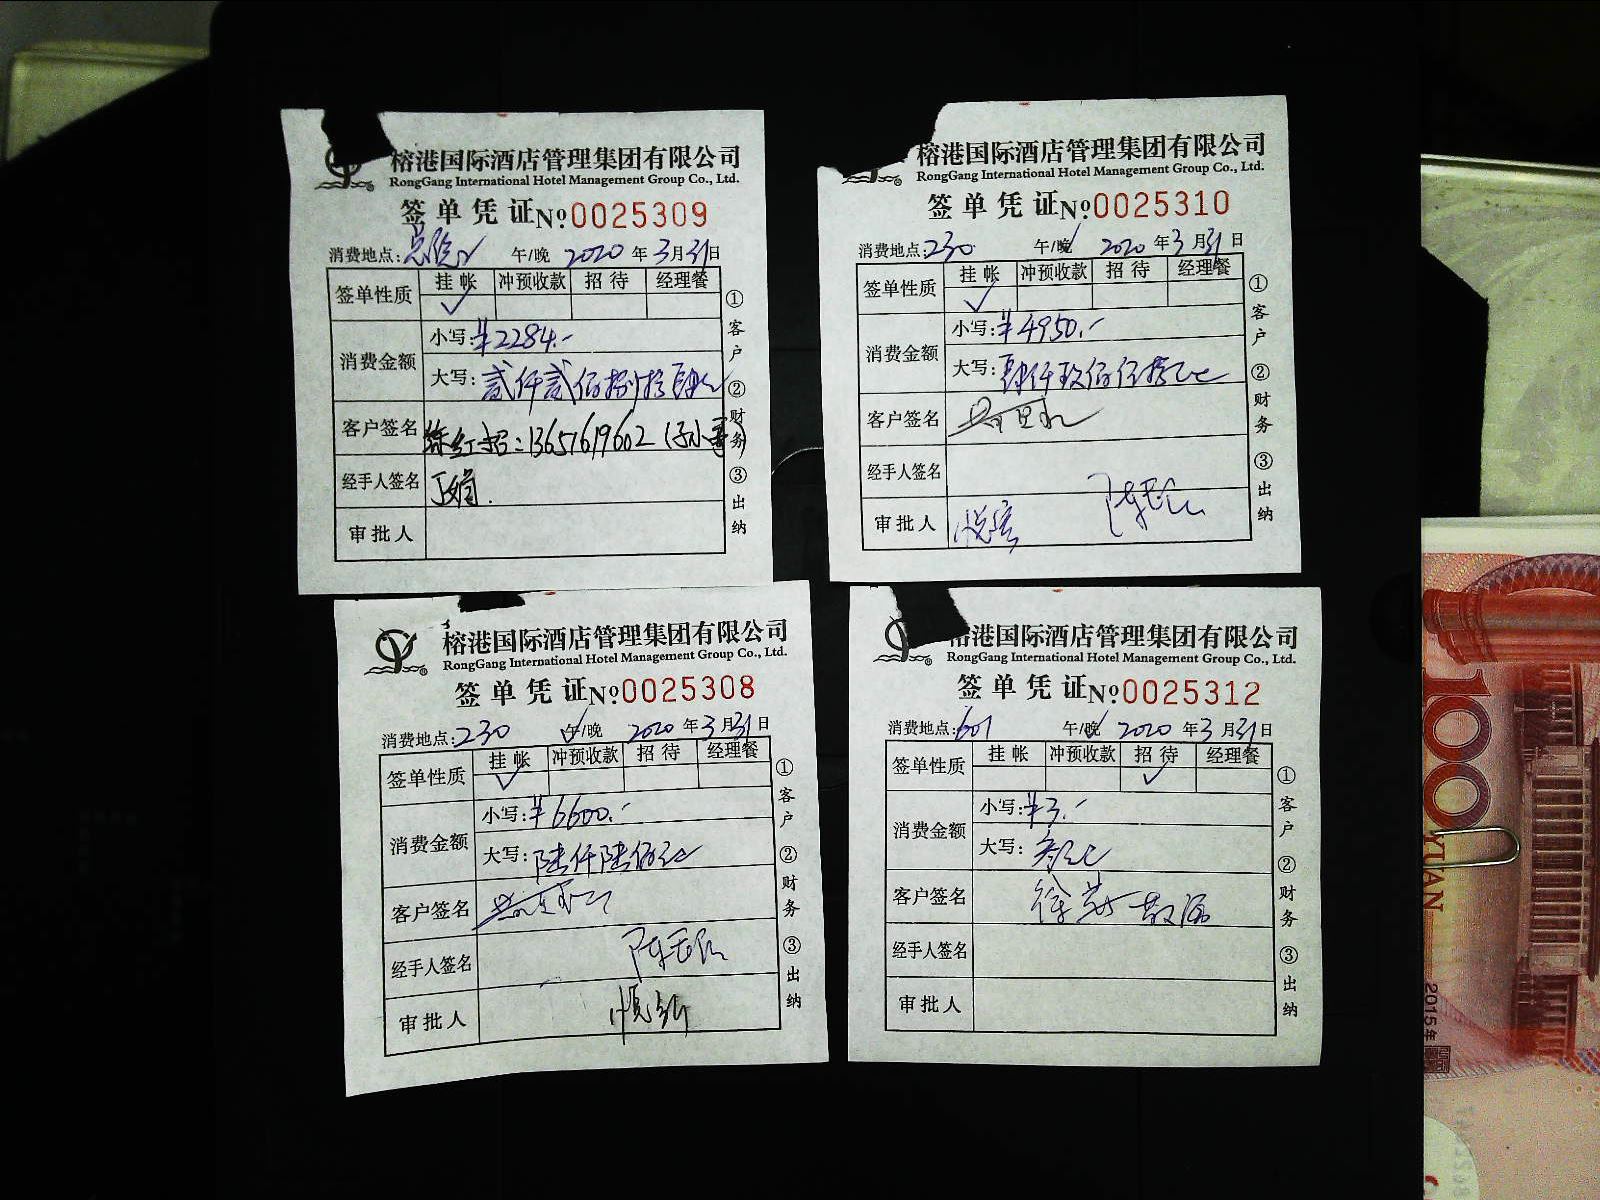 榕港国际酒店管理集团有限公司
RongGang International Hotel Management Group Co., Ltd.
签单凭证№0025309
消费地点: 午/晚 2020年3月31日
签单性质 挂帐 冲预收款 招待 经理餐
✓
消费金额
小写:¥2284.-
大写:贰仟贰佰捌拾肆元
客户签名 徐红 13657619602
经手人签名 丁娟.
审批人
①客户 ②财务 ③出纳
榕港国际酒店管理集团有限公司
RongGang International Hotel Management Group Co., Ltd.
签单凭证№0025310
消费地点:230 午/晚 2020年3月31日
签单性质 挂帐 冲预收款 招待 经理餐
✓
消费金额
小写:¥4950.-
大写:肆仟玖佰伍拾元
客户签名
经手人签名
审批人
①客户 ②财务 ③出纳
榕港国际酒店管理集团有限公司
RongGang International Hotel Management Group Co., Ltd.
签单凭证№0025308
消费地点:230 午/晚 2020年3月31日
签单性质 挂帐 冲预收款 招待 经理餐
✓
消费金额
小写:¥6600.-
大写:陆仟陆佰元
客户签名
经手人签名
审批人
①客户 ②财务 ③出纳
港国际酒店管理集团有限公司
RongGang International Hotel Management Group Co., Ltd.
签单凭证№0025312
消费地点:601 午/晚 2020年3月31日
签单性质 挂帐 冲预收款 招待 经理餐
✓
消费金额
小写:¥3.-
大写:叁元
客户签名
经手人签名
审批人
①客户 ②财务 ③出纳
100
YUAN
2015年